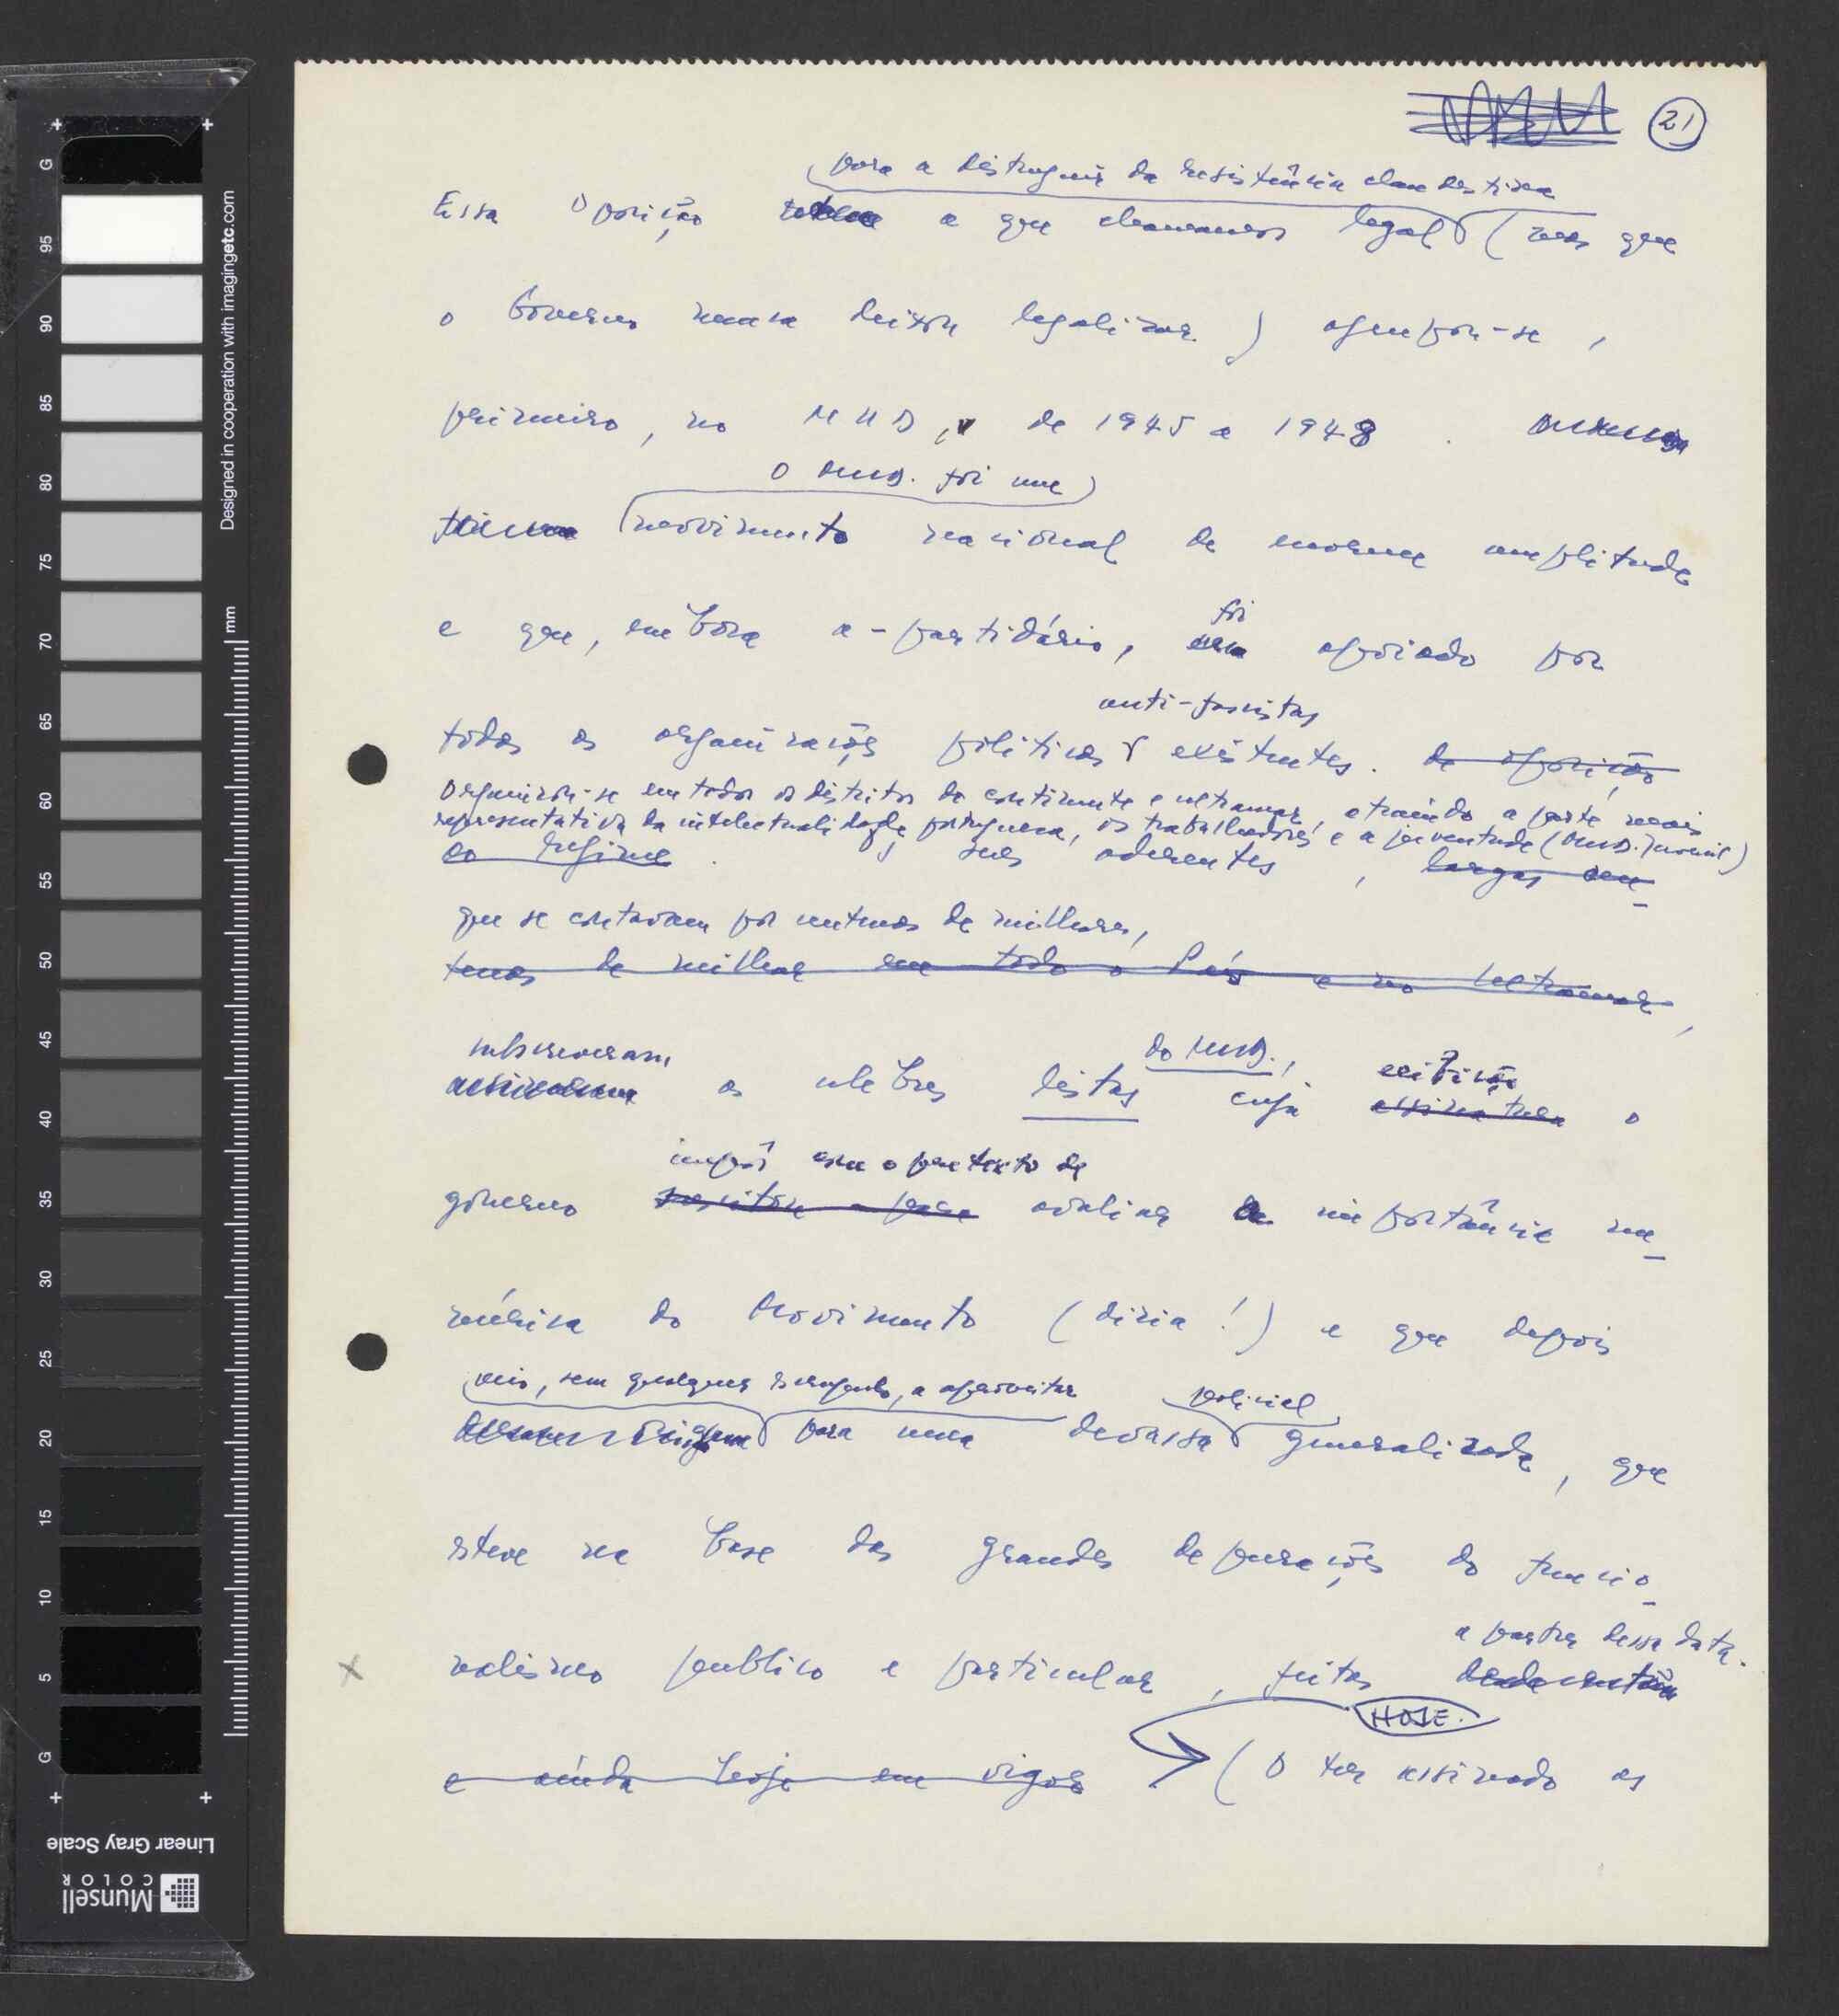 21
para a distinguir da resistência clandestina
Essa Oposição a que chamamos legal (mas que
o Governo nunca deixou legalizar) agrupou-se,
primeiro, no MUD, de 1945 a 1948.
O MUD. foi um
movimento nacional de enorme amplitude
e que, embora a-partidário, foi apoiado por
anti-fascistas
todas as organizações políticas existentes. de oposição
Organizou-se em todos os distritos do continente e ultramar, atraindo a parte mais
representativa da intelectualidade portuguesa, os trabalhadores e a juventude (MUD. Juvenil)
ao regime. Os seus aderentes, largas cen-
que se contavam por centenas de milhares,
tenas de milhar em todo o País e no Ultramar,
subscreveram
assinaram as célebres listas do MUD., cuja exibição
assinatura o
impôs com o pretexto de
governo avaliar a importância nu-
mérica do Movimento (dizia!) e que depois
veio, sem qualquer escrúpulo, a aproveitar
policial
para uma devassa generalizada, que
esteve na base das grandes depurações do funcio-
a partir dessa data.
nalismo público e particular, feitas desde então
HOJE.
e ainda hoje em vigor (O ter assinado as
G 95 90 85 80 75 70 65 60 55 50 45 40 35 30 25 20 15 10 5 G
Designed in cooperation with imagingetc.com
mm
Linear Gray Scale
Munsell
COLOR